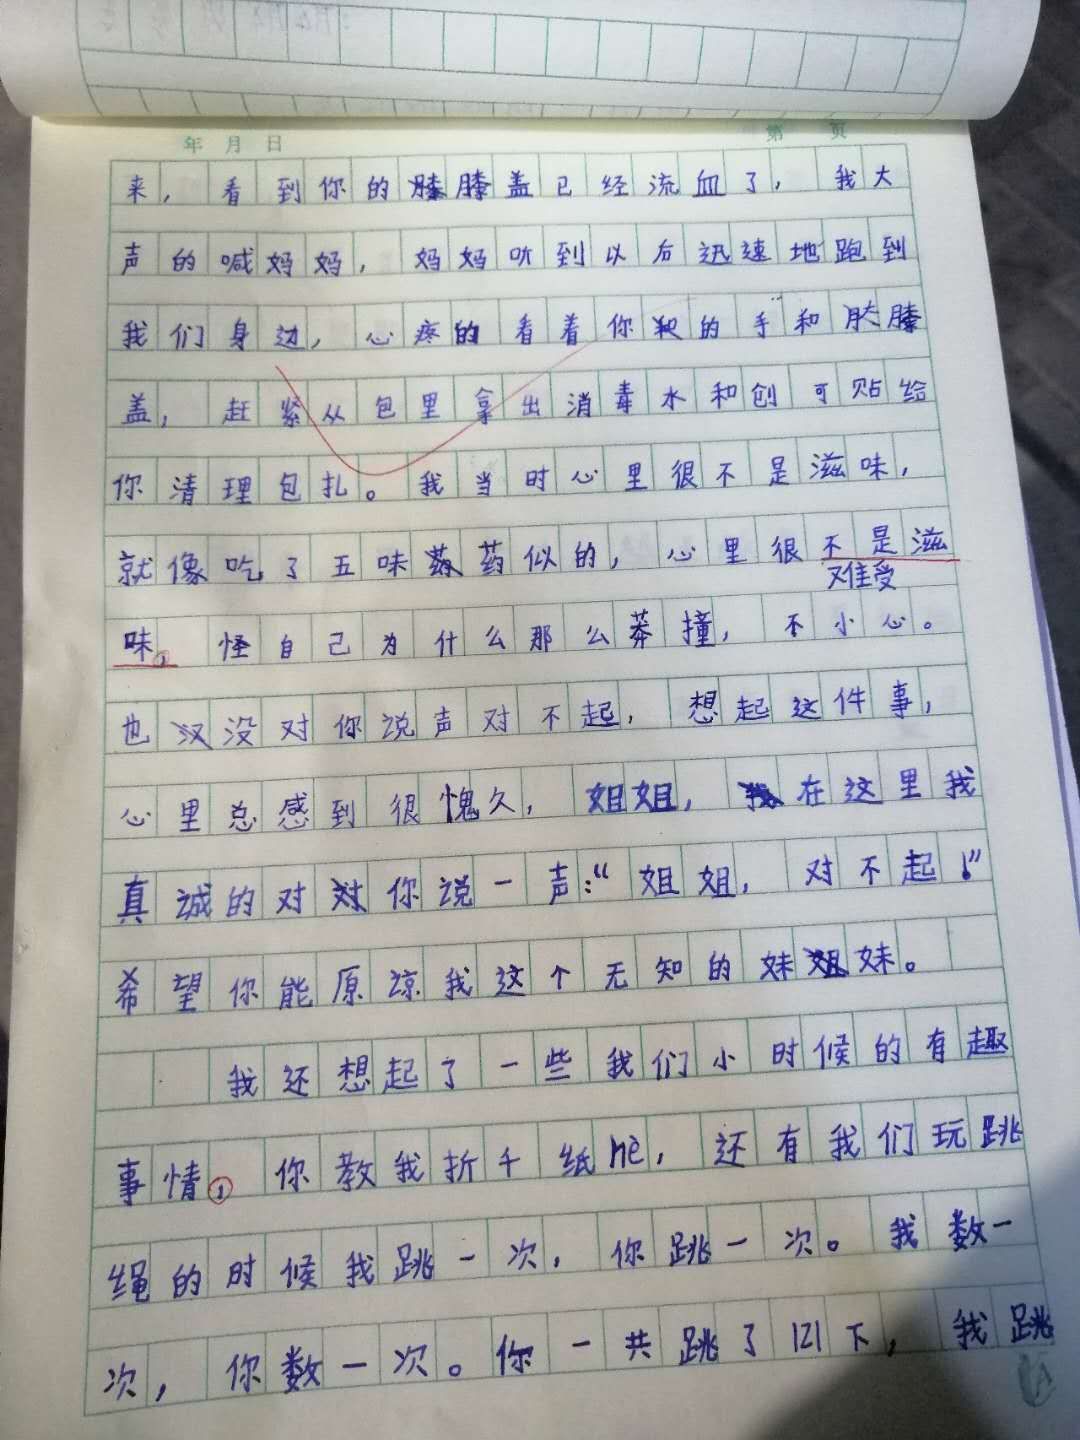 年 月 日 第 页
来，看到你的膝盖已经流血了，我大
声的喊妈妈，妈妈听到以后迅速地跑到
我们身边，心疼的看着你的手和膝
盖，赶紧从包里拿出消毒水和创可贴给
你清理包扎。我当时心里很不是滋味，
就像吃了五味药似的，心里很不是滋
难受
味，怪自己为什么那么莽撞，不小心。
也没对你说声对不起，想起这件事，
心里总感到很愧久，姐姐，在这里我
真诚的对你说一声：“姐姐，对不起！”
希望你能原谅我这个无知的妹妹。
我还想起了一些我们小时候的有趣
事情，你教我折千纸hè，还有我们玩跳
绳的时候我跳一次，你跳一次。我数一
次，你数一次。你一共跳了121下，我跳